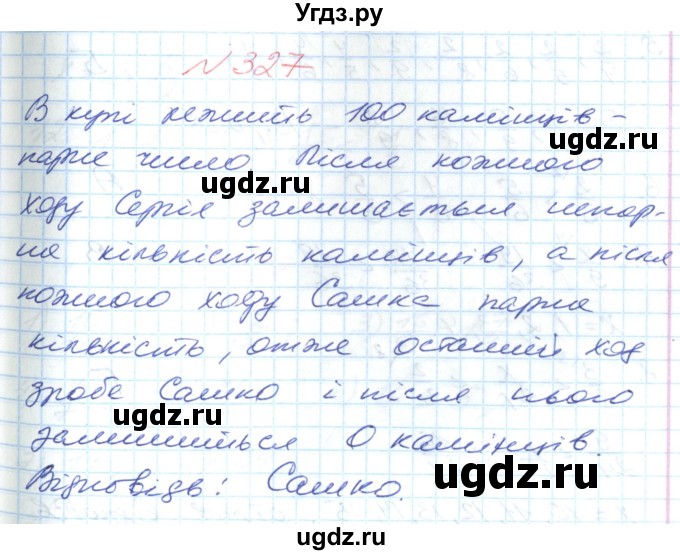 Угдз.ру
№327
В купі лежить 100 камінців -
парне число. Після кожного
ugdz.ru
ugdz.ru
ходу Сергія залишається непар-
на кількість камінців, а після
кожного ходу Сашка парна
ugdz.ru
ugdz.ru
кількість, отже останній ход
зробе Сашко і після нього
ugdz.ru
залишиться 0 камінців.
ugdz.ru
Відповідь: Сашко.
ugdz.ru